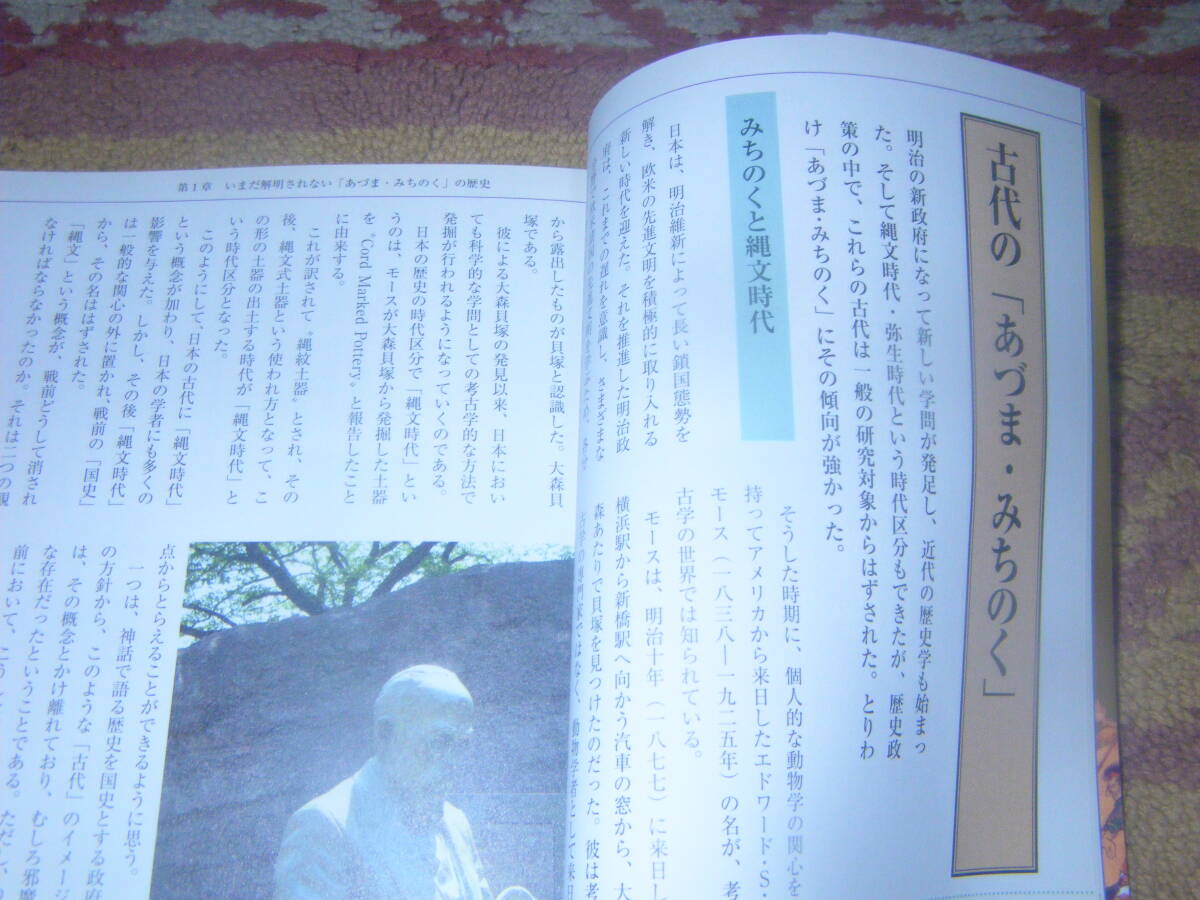 古代の「あづま・みちのく」
明治の新政府になって新しい学問が発足し、近代の歴史学も始まっ
た。そして縄文時代・弥生時代という時代区分もできたが、歴史政
策の中で、これらの古代は一般の研究対象からはずされた。とりわ
け「あづま・みちのく」にその傾向が強かった。
みちのくと縄文時代
日本は、明治維新によって長い鎖国態勢を
解き、欧米の先進文明を積極的に取り入れる
新しい時代を迎えた。それを推進した明治政
府は、これまでの遅れを意識し、さまざまな
そうした時期に、個人的な動物学の関心を
持ってアメリカから来日したエドワード・S・
モース（一八三八―一九二五年）の名が、考
古学の世界では知られている。
モースは、明治十年（一八七七）に来日し
横浜駅から新橋駅へ向かう汽車の窓から、大
森あたりで貝塚を見つけたのだった。彼は考
古学の専門家ではなく、動物学者として来日
第1章 いまだ解明されない「あづま・みちのく」の歴史
から露出したものが貝塚と認識した。大森貝
塚である。
彼による大森貝塚の発見以来、日本におい
ても科学的な学問としての考古学的な方法で
発掘が行われるようになっていくのである。
日本の歴史の時代区分で「縄文時代」とい
うのは、モースが大森貝塚から発掘した土器
を〝Cord Marked Pottery〟と報告したこと
に由来する。
これが訳されて〝縄紋土器〟とされ、その
後、縄文式土器という使われ方となって、こ
の形の土器の出土する時代が「縄文時代」と
いう時代区分となった。
このようにして、日本の古代に「縄文時代」
という概念が加わり、日本の学者にも多くの
影響を与えた。しかし、その後「縄文時代」
は一般的な関心の外に置かれ、戦前の「国史」
から、その名ははずされた。
「縄文」という概念が、戦前どうして消され
なければならなかったのか。それは二つの観
点からとらえることができるように思う。
一つは、神話で語る歴史を国史とする政府
の方針から、このような「古代」のイメージ
は、その概念とかけ離れており、むしろ邪魔
な存在だったということである。ただし、
前において、こうし